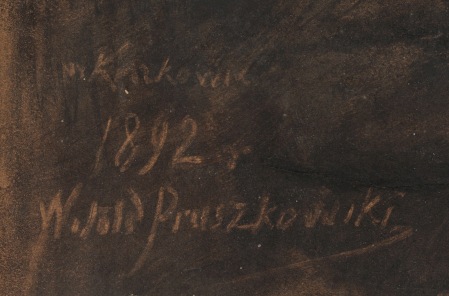 w Krakowie
1892 r
Witold Pruszkowski